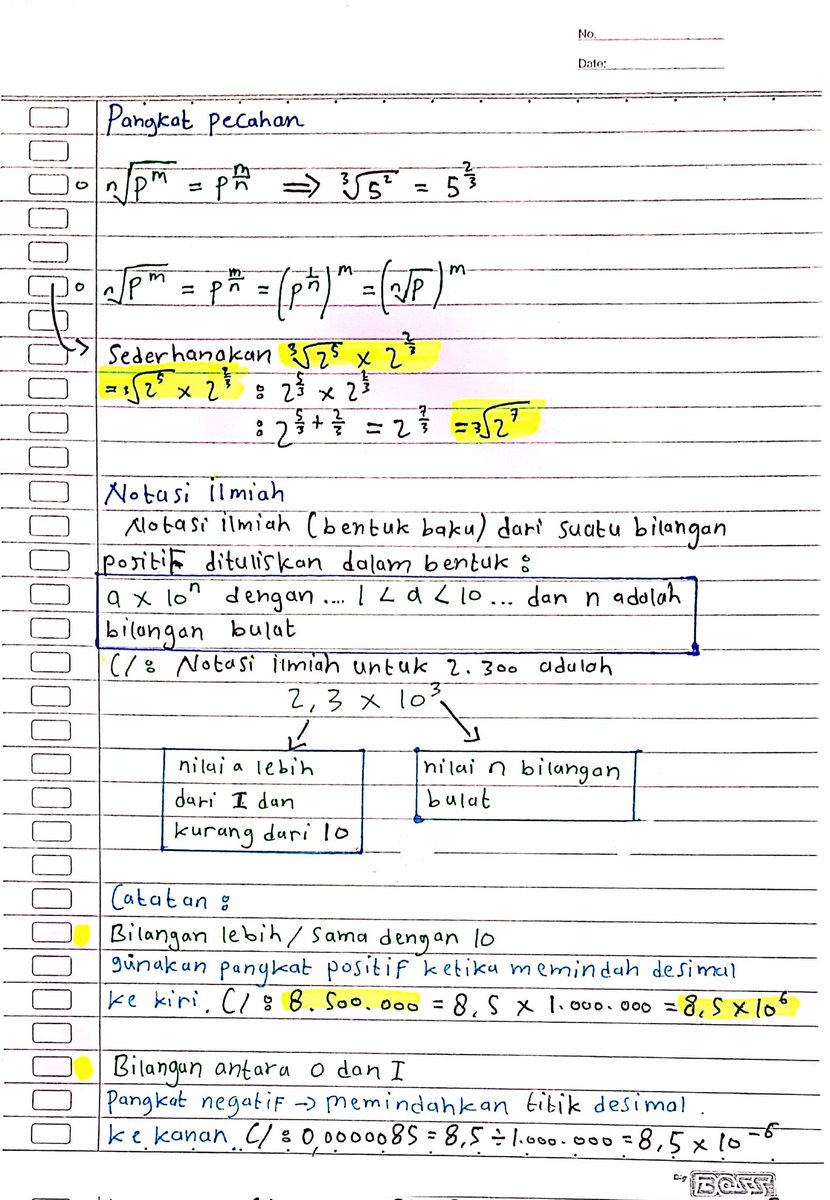 No.
Date:
Pangkat pecahan
o ⁿ√pᵐ = p^(m/n) ⇒ ³√5² = 5^(2/3)
o ⁿ√pᵐ = p^(m/n) = (p^(1/n))^m = (ⁿ√p)^m
Sederhanakan ³√2⁵ × 2^(2/3)
= ³√2⁵ × 2^(2/3) : 2^(5/3) × 2^(2/3)
: 2^(5/3 + 2/3) = 2^(7/3) = ³√2⁷
Notasi ilmiah
Notasi ilmiah (bentuk baku) dari suatu bilangan
positif dituliskan dalam bentuk :
a × 10ⁿ dengan .... 1 < a < 10 ... dan n adalah
bilangan bulat
C/ : Notasi ilmiah untuk 2.300 adalah
2,3 × 10³
nilai a lebih
dari I dan
kurang dari 10
nilai n bilangan
bulat
Catatan :
Bilangan lebih / sama dengan 10
gunakan pangkat positif ketika memindah desimal
ke kiri. C/ : 8.500.000 = 8,5 × 1.000.000 = 8,5 × 10⁶
Bilangan antara 0 dan I
Pangkat negatif → memindahkan titik desimal.
ke kanan C/ : 0,0000085 = 8,5 ÷ 1.000.000 = 8,5 × 10⁻⁶
Big BOSS